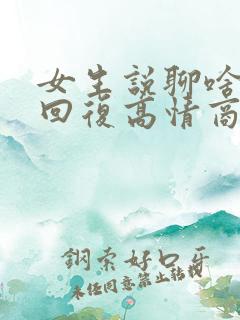 女生說聊啥
回復高情商
鋼索好口牙
未经同意禁止转载